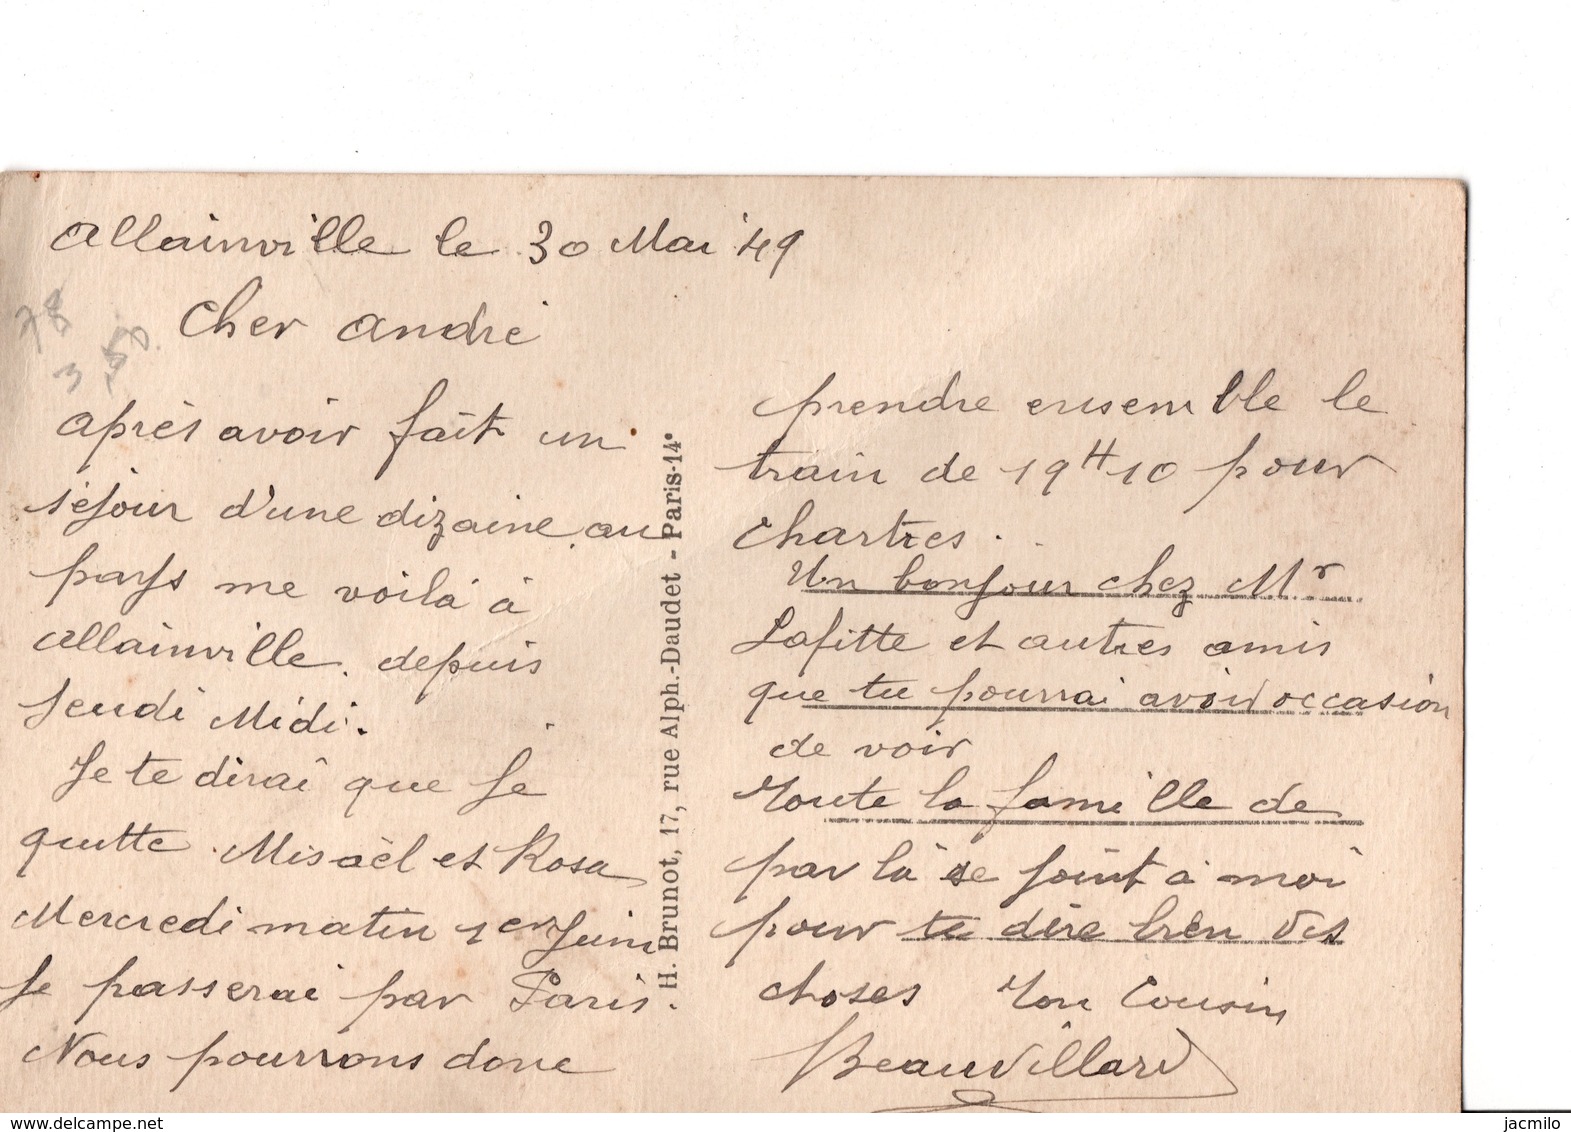 Allainville le 30 Mai 49
Cher André
78
3,50
après avoir fait un
séjour d'une dizaine au
pays me voilà à
Allainville depuis
Jeudi Midi.
Je te dirai que je
quitte Misaël et Rosa
Mercredi matin 1er Juin
Je passerai par Paris.
Nous pourrons donc
H. Brunot, 17, rue Alph.-Daudet - Paris-14e
prendre ensemble le
train de 19H10 pour
Chartres.
Un bonjour chez Mr
Lafitte et autres amis
que tu pourrai avoir occasion
de voir
Toute la famille de
par là se joint à moi
pour te dire bien des
choses Ton Cousin
Beauvillard
delcampe.net
jacmilo